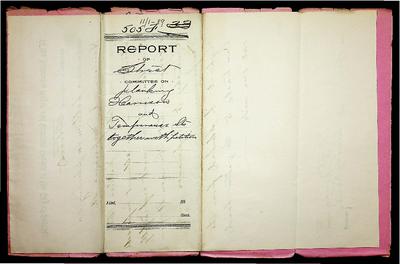 11/1-89
505
REPORT
OF
Street
COMMITTEE ON
planking
Harrison
and
Temperance Sts
together with petition
Filed,
188
Clerk.